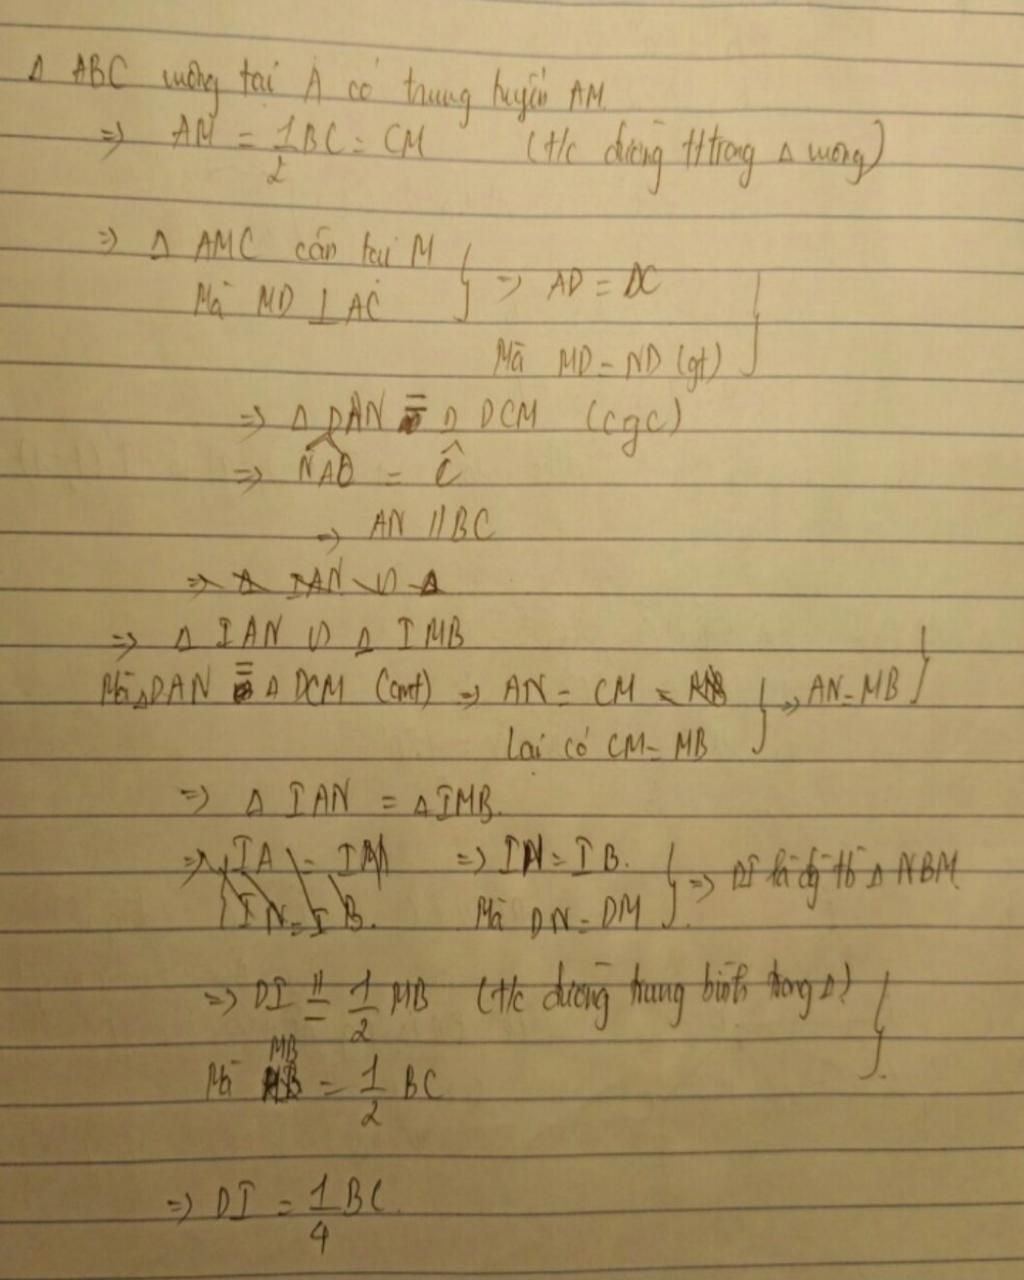 Δ ABC vuông tại A có trung tuyến AM
=> AM = 1/2 BC = CM (t/c đường tt trong Δ vuông)
=> Δ AMC cân tại M
Mà MD ⊥ AC } => AD = DC
Mà MD = ND (gt) }
=> Δ DAN = Δ DCM (cgc)
=> NAD = Ĉ
=> AN // BC
=> Δ IAN ∽ Δ
=> Δ IAN ∽ Δ IMB
Mà Δ DAN = Δ DCM (cmt) => AN = CM } => AN = MB }
lại có CM = MB
=> Δ IAN = Δ IMB.
=> IA = IM => IN = IB. } => DI là đg tb Δ NBM
IN = IB. Mà DN = DM
=> DI // = 1/2 MB (t/c đường trung bình trong Δ) }
Mà MB = 1/2 BC
=> DI = 1/4 BC.